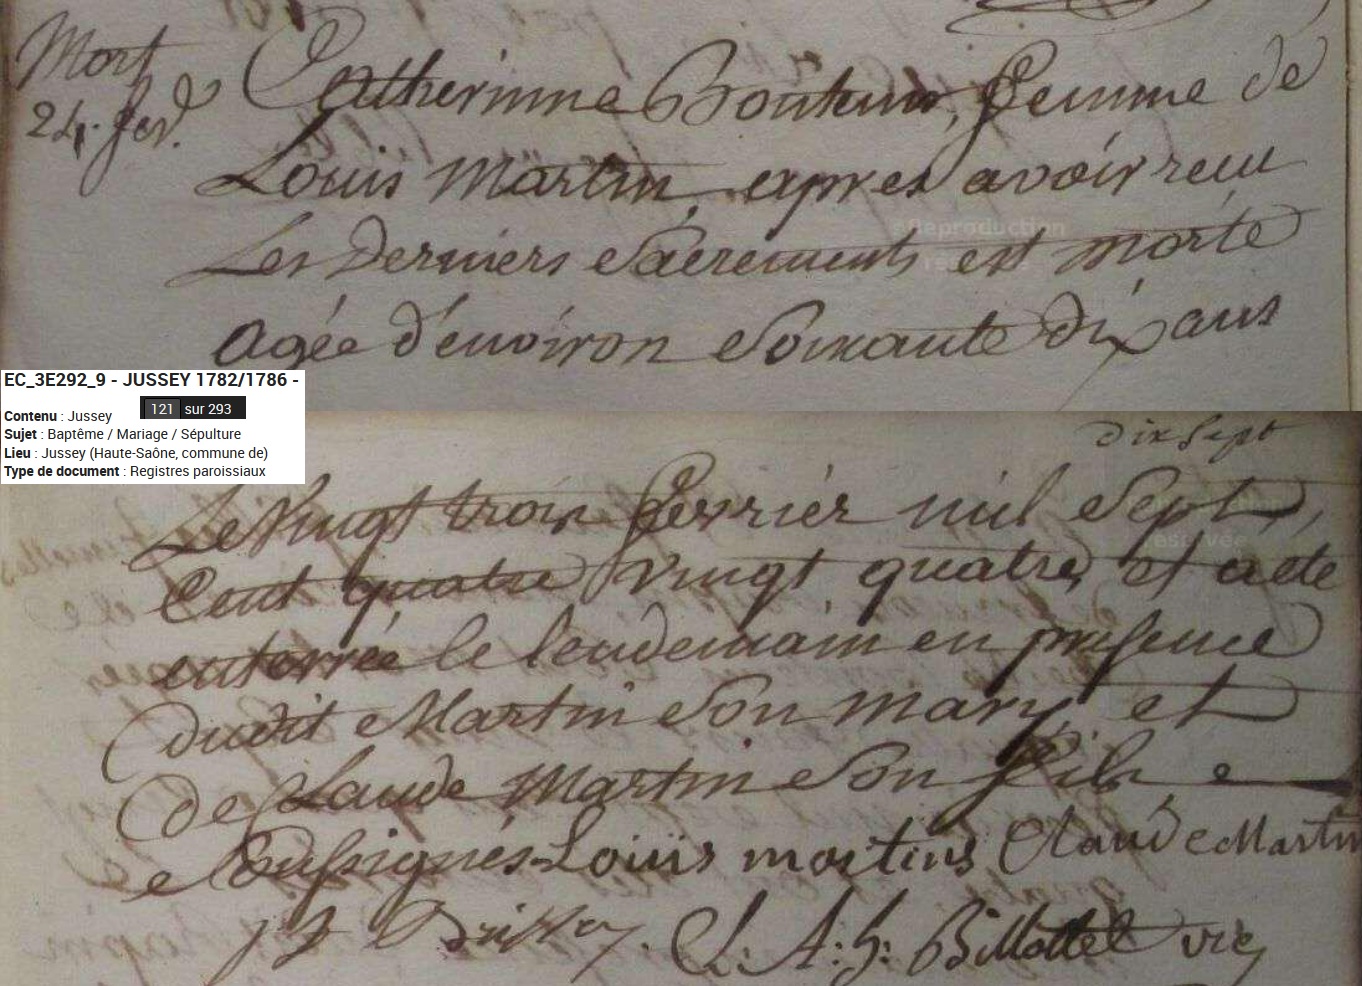 Mort
24. fev.
Catherinne femme de
Louis Martin, expres avoir reçu
Les Derniers Sacrements est morte
agée d'environ Soixante dix ans
EC_3E292_9 - JUSSEY 1782/1786 -
121 sur 293
Contenu : Jussey
Sujet : Baptême / Mariage / Sépulture
Lieu : Jussey (Haute-Saône, commune de)
Type de document : Registres paroissiaux
dix Sept
Le Vingt trois fevrier mil Sept
Cent quatre Vingt quatre, et a ete
enterrée le lendemain en presence
dudit Martin Son mary, et
de Claude Martin Son fils
Soussignés Louiis martins Claude Martin
L. A: h: Billottet vic